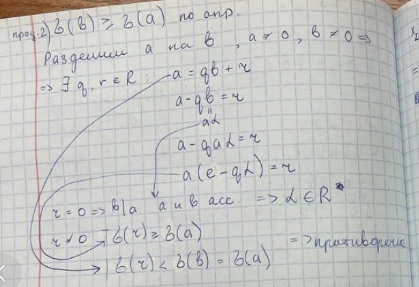 прод. 2) δ(b) ≥ δ(a) по опр.
Разделим a на b, a ≠ 0, b ≠ 0 =>
=> ∃ q, r ∈ R : a = qb + r
a - qb = r
=
aα
a - qaα = r
a(e - qα) = r
r = 0 => b|a a и b асс. => α ∈ R*
r ≠ 0 δ(r) ≥ δ(a)
=> противоречие
δ(r) < δ(b) = δ(a)